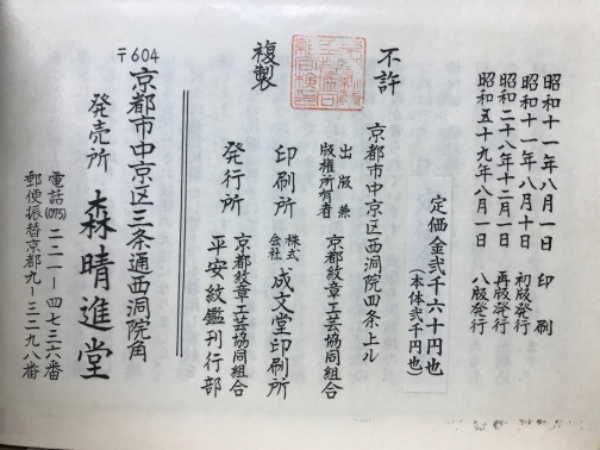 昭和十一年八月一日 印刷
昭和十一年八月十日 初版発行
昭和二十八年十二月一日 再版発行
昭和五十九年八月一日 八版発行
定価金弐千六十円也
(本体弐千円也)
不許
複製
京都市中京区西洞院四条上ル
出版兼
版権所有者 京都紋章工芸協同組合
印刷所 株式会社 成文堂印刷所
発行所 京都紋章工芸協同組合
平安紋鑑刊行部
〒604
京都市中京区三条通西洞院角
発売所 森晴進堂
電話(075)二二一―四七三六番
郵便振替京都九―三二九八番